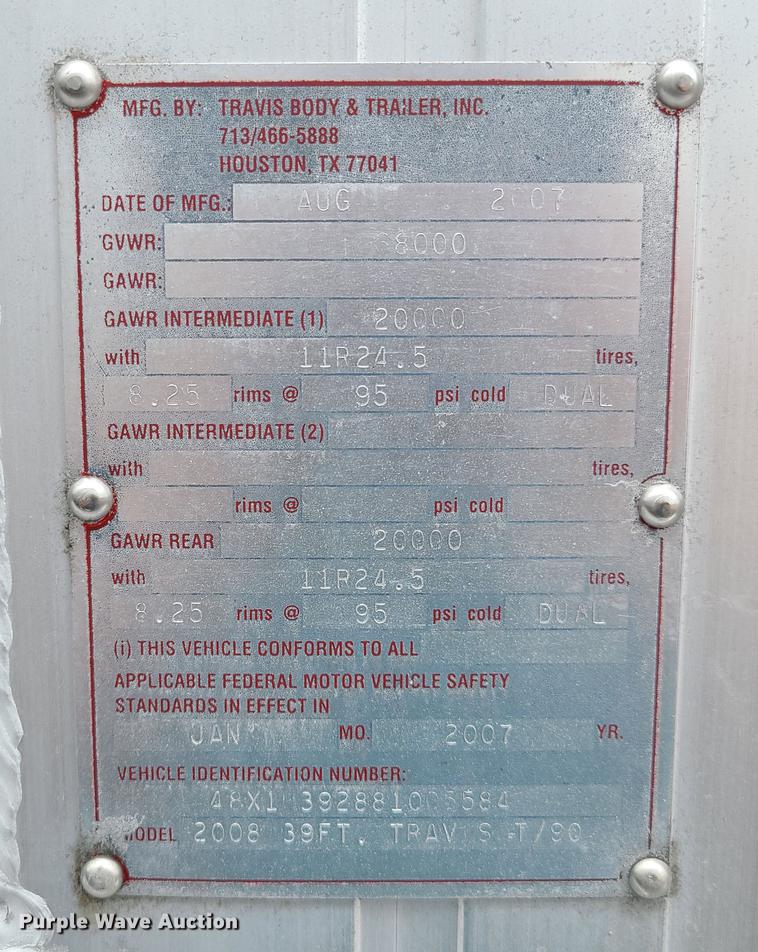 MFG. BY: TRAVIS BODY & TRAILER, INC.
713/466-5888
HOUSTON, TX 77041
DATE OF MFG.: AUG 2007
GVWR:
GAWR:
GAWR INTERMEDIATE (1) 20000
with 11R24.5 tires,
8.25 rims @ 95 psi cold DUAL
GAWR INTERMEDIATE (2)
with tires,
rims @ psi cold
GAWR REAR 20000
with 11R24.5 tires,
8.25 rims @ 95 psi cold DUAL
(i) THIS VEHICLE CONFORMS TO ALL
APPLICABLE FEDERAL MOTOR VEHICLE SAFETY
STANDARDS IN EFFECT IN
JAN MO. 2007 YR.
VEHICLE IDENTIFICATION NUMBER:
MODEL 2008 39FT. TRAVIS T/90
Purple Wave Auction